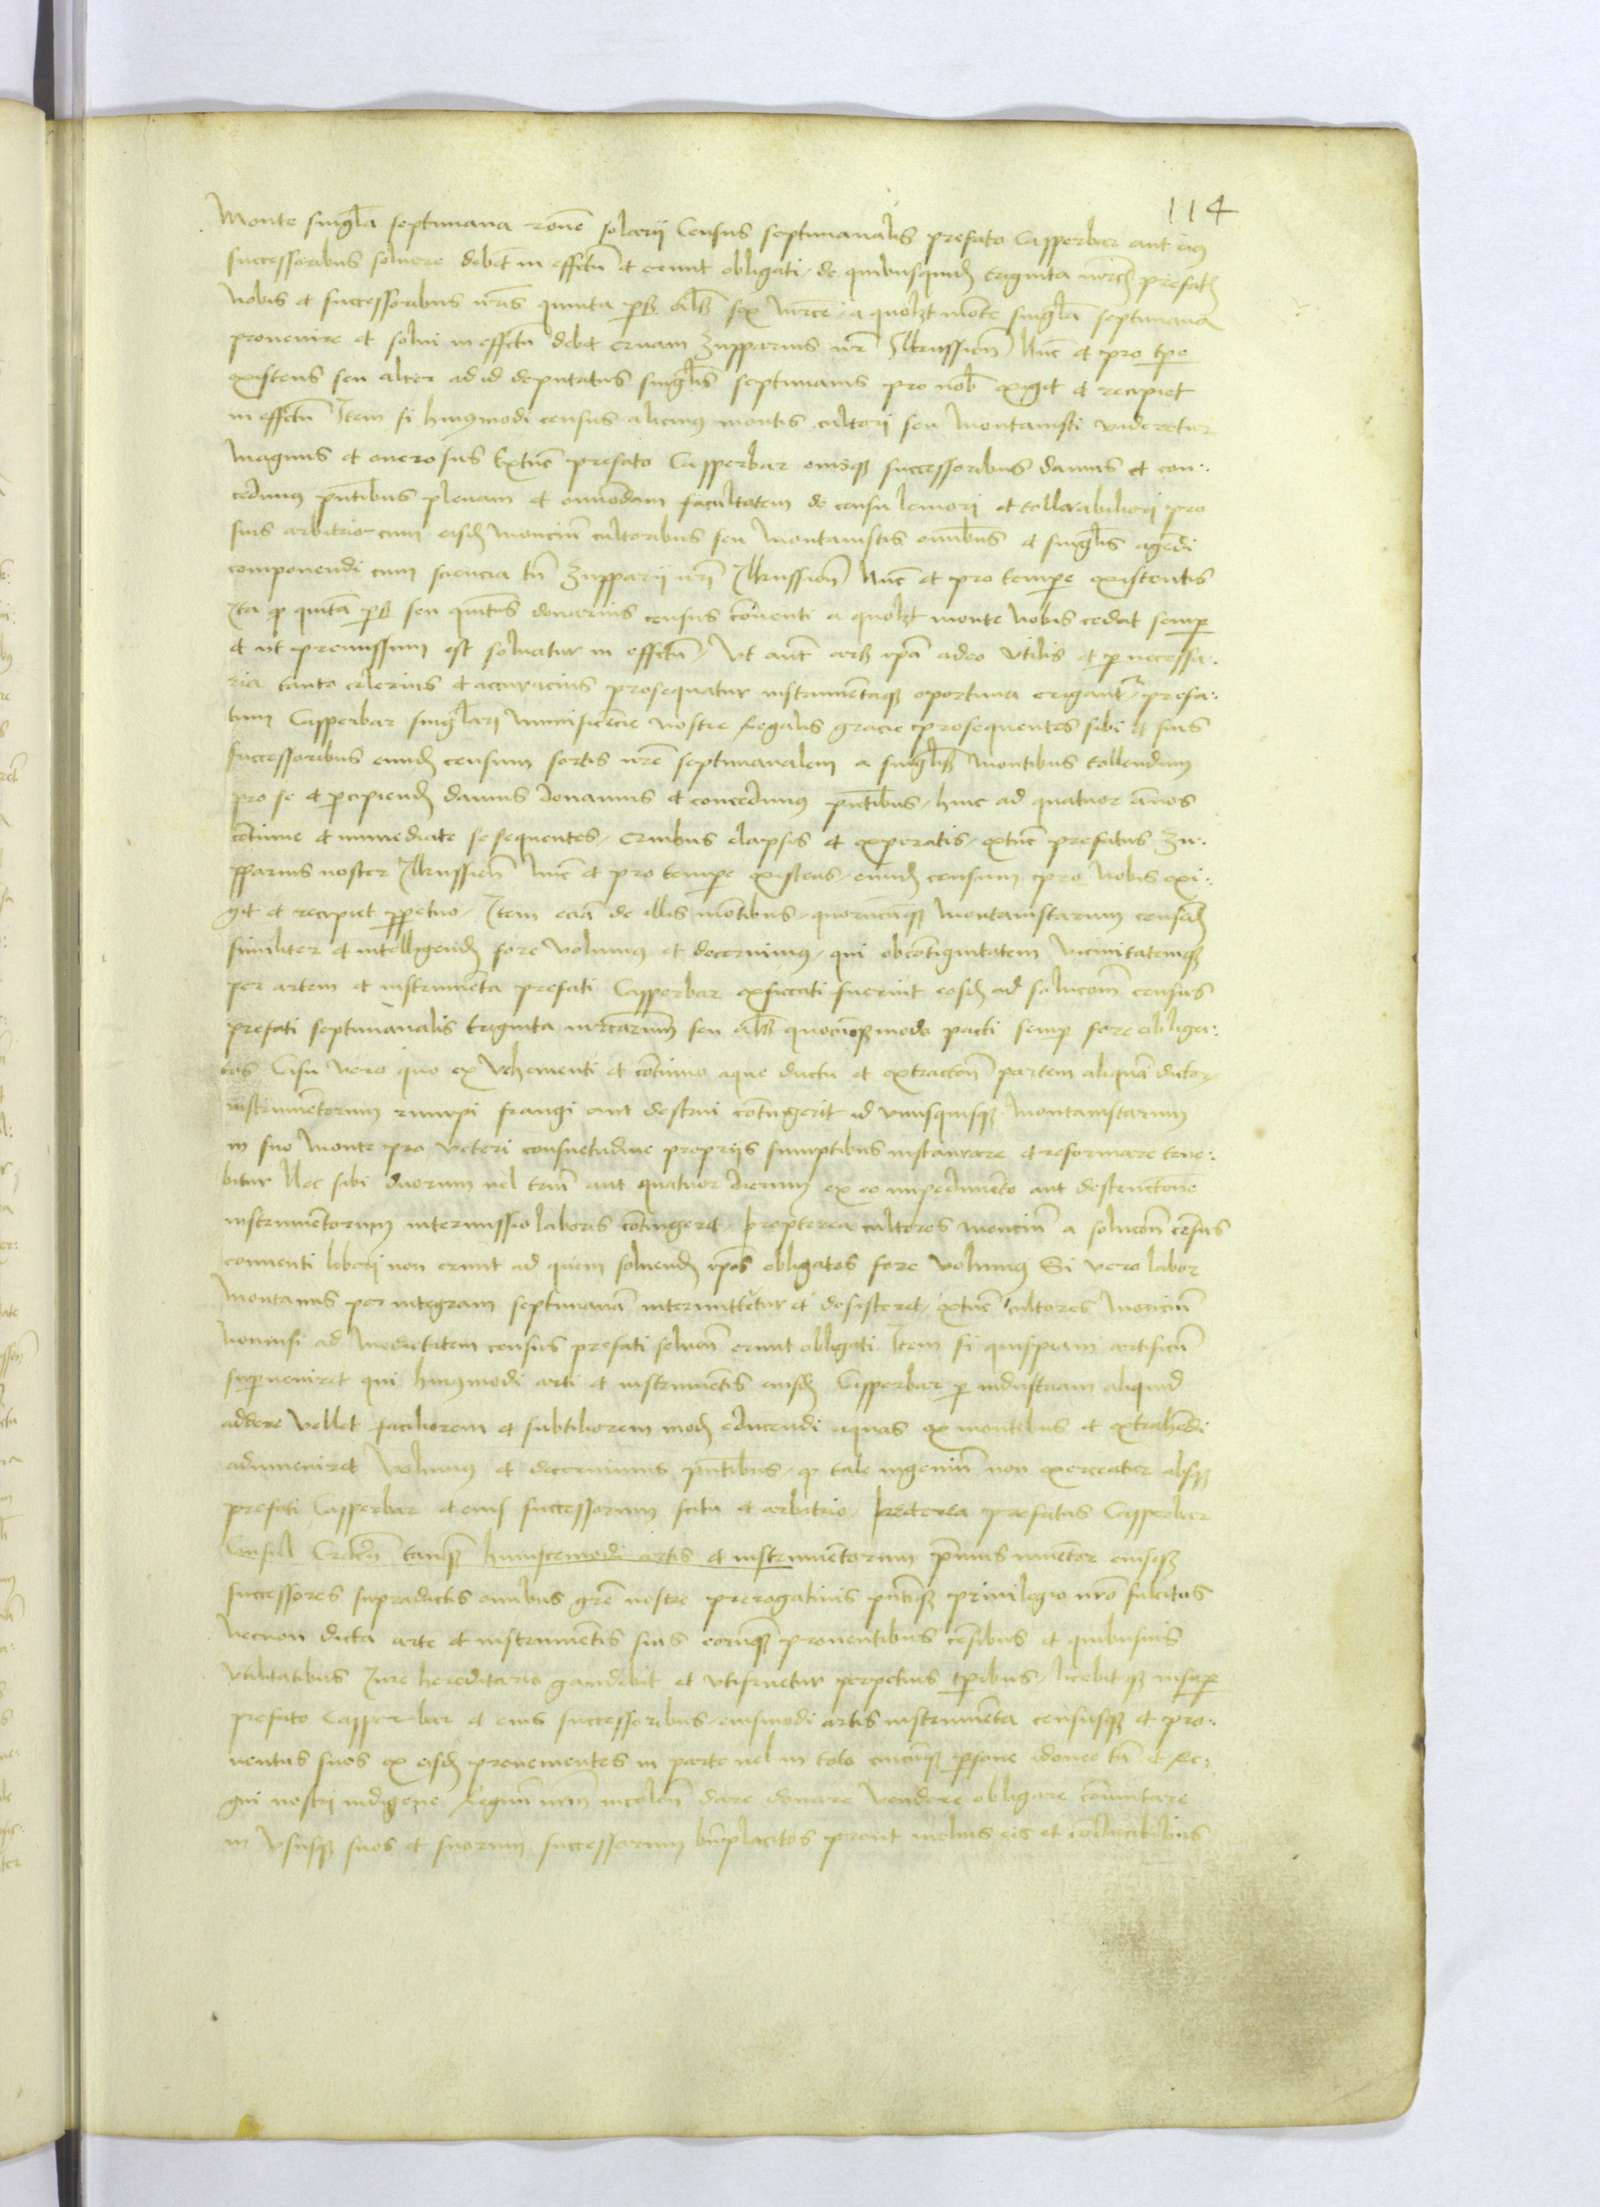 114
Monte singla septimana rone solarii Census septimanalis prefato Casperbar aut eius
successoribus solvere debet in effectu et erunt obligati, de quibusquid triginta
Nobis et successoribus nris quinta pars sex a quolibet monte singla septimana
provenire et solvi in effectu debet quam zupparius nr Ilkussien Nunc et pro tpe
existens seu alter ad id deputatus singlis septimanis pro nob exiget et recipiet
in effectu Item si huiusmodi census alicuius montis cultori seu Montaniste videretur
Magnus et onerosus Extunc prefato Casperbar eiusque successoribus damus et con-
cedimus pntibus plenam et omnodam facultatem de censu leniori et tollerabiliori pro
suis arbitrio cum eisdem monciu cultoribus seu Montanistis omnibus et singlis agendi
componendi cum sciencia tn Zupparii nri Ilkussien Nunc et pro tempore existentis
Ita quod quinta pars seu quintus denarius census conventi a quolibet monte Nobis cedat semper
et ut premissum est solvatur in effectu, Vt aut ars ipa adeo utilis et pernecessa-
ria tanto celerius et accuracius prosequatur instrumentaque oportuna erigantur, prefa-
tum Casperbar singlari Munificencie nostre Regalis gracie prosequentes sibi et suis
successoribus eundem censum sortis nre septimanalem a singlis Montibus tollendum
pro se et percipiend damus donamus et concedimus pntibus, hinc ad quatuor annos
continue et immediate se sequentes, Quibus elapsis et expiratis, extunc prefatus Zu-
pparius noster Ilkussien Nunc et pro tempore existens, eundem censum pro Nobis exi-
git et recipiet perpetuo, Item eciam de illis Montibus, quorumcunque Montanistarum censend
similiter et intelligend fore Volumus et decernimus, qui ob contiguitatem Vicinitatemque
per artem et instrumenta prefati Casperbar exsiccati fuerint eosdem ad solucionem census
prefati septimanalis triginta marcarum seu alias quocunque modo pacti semper fore obliga-
tos Casu vero quo ex Vehementi et continuo aque ductu et extractione partem aliquam dictor
instrumentorum rumpi frangi aut destrui contingerit id unusquisque Montanistarum
in suo Monte pro Veteri consuetudine propriis sumptibus instaurare et reformare tene-
bitur Nec sibi duorum vel trium aut quatuor dierum ex eo impedimento aut destructione
instrumentorum intermissio laboris contingeret, propterea cultores monciu a solucione census
conventi liberi non erunt ad quem solvendum ipos obligatos fore Volumus Si vero labor
Montanus per integram septimanam intermitteretur et desisteret, extunc cultores Monciu
Nonnisi ad medietatem census prefati solvend erunt obligati Item si quispiam artificum
superveniret qui huiusmodi arti et instrumentis eiusdem Casperbar per industriam aliquid
addere Vellet faciliorem et subtiliorem modum educendi aquas ex montibus et extrahendi
adinveniret Volumus et decernimus pntibus, quod tale ingenium non exerceatur absque
prefati Casperbar et eius successorum scitu et arbitrio, Preterea prefatus Casperbar
Consul tamquam huiuscemodi artis et instrumentorum primus inventor eiusque
successores supradictis omnibus gre nostre prerogativis pntique privilegio nro fulcitus
Necnon dicta arte et instrumentis suis eorumque proventibus censibus et quibusvis
Vtilitatibus Jure hereditario gaudebit et utifruetur perpetuis tporibus, licebitque insuper
prefato Casperbar et eius successoribus eiusmodi artis instrumenta censusque et pro-
ventus suos ex eisdem provenientes in parte vel in toto cuicunque persone idonee tn et Re-
gni nostri indigene Regnum nrm incolen dare donare Vendere obligare commutare
in Vsusque suos et suorum successorum bnplacitos prout melius eis et conducibilius